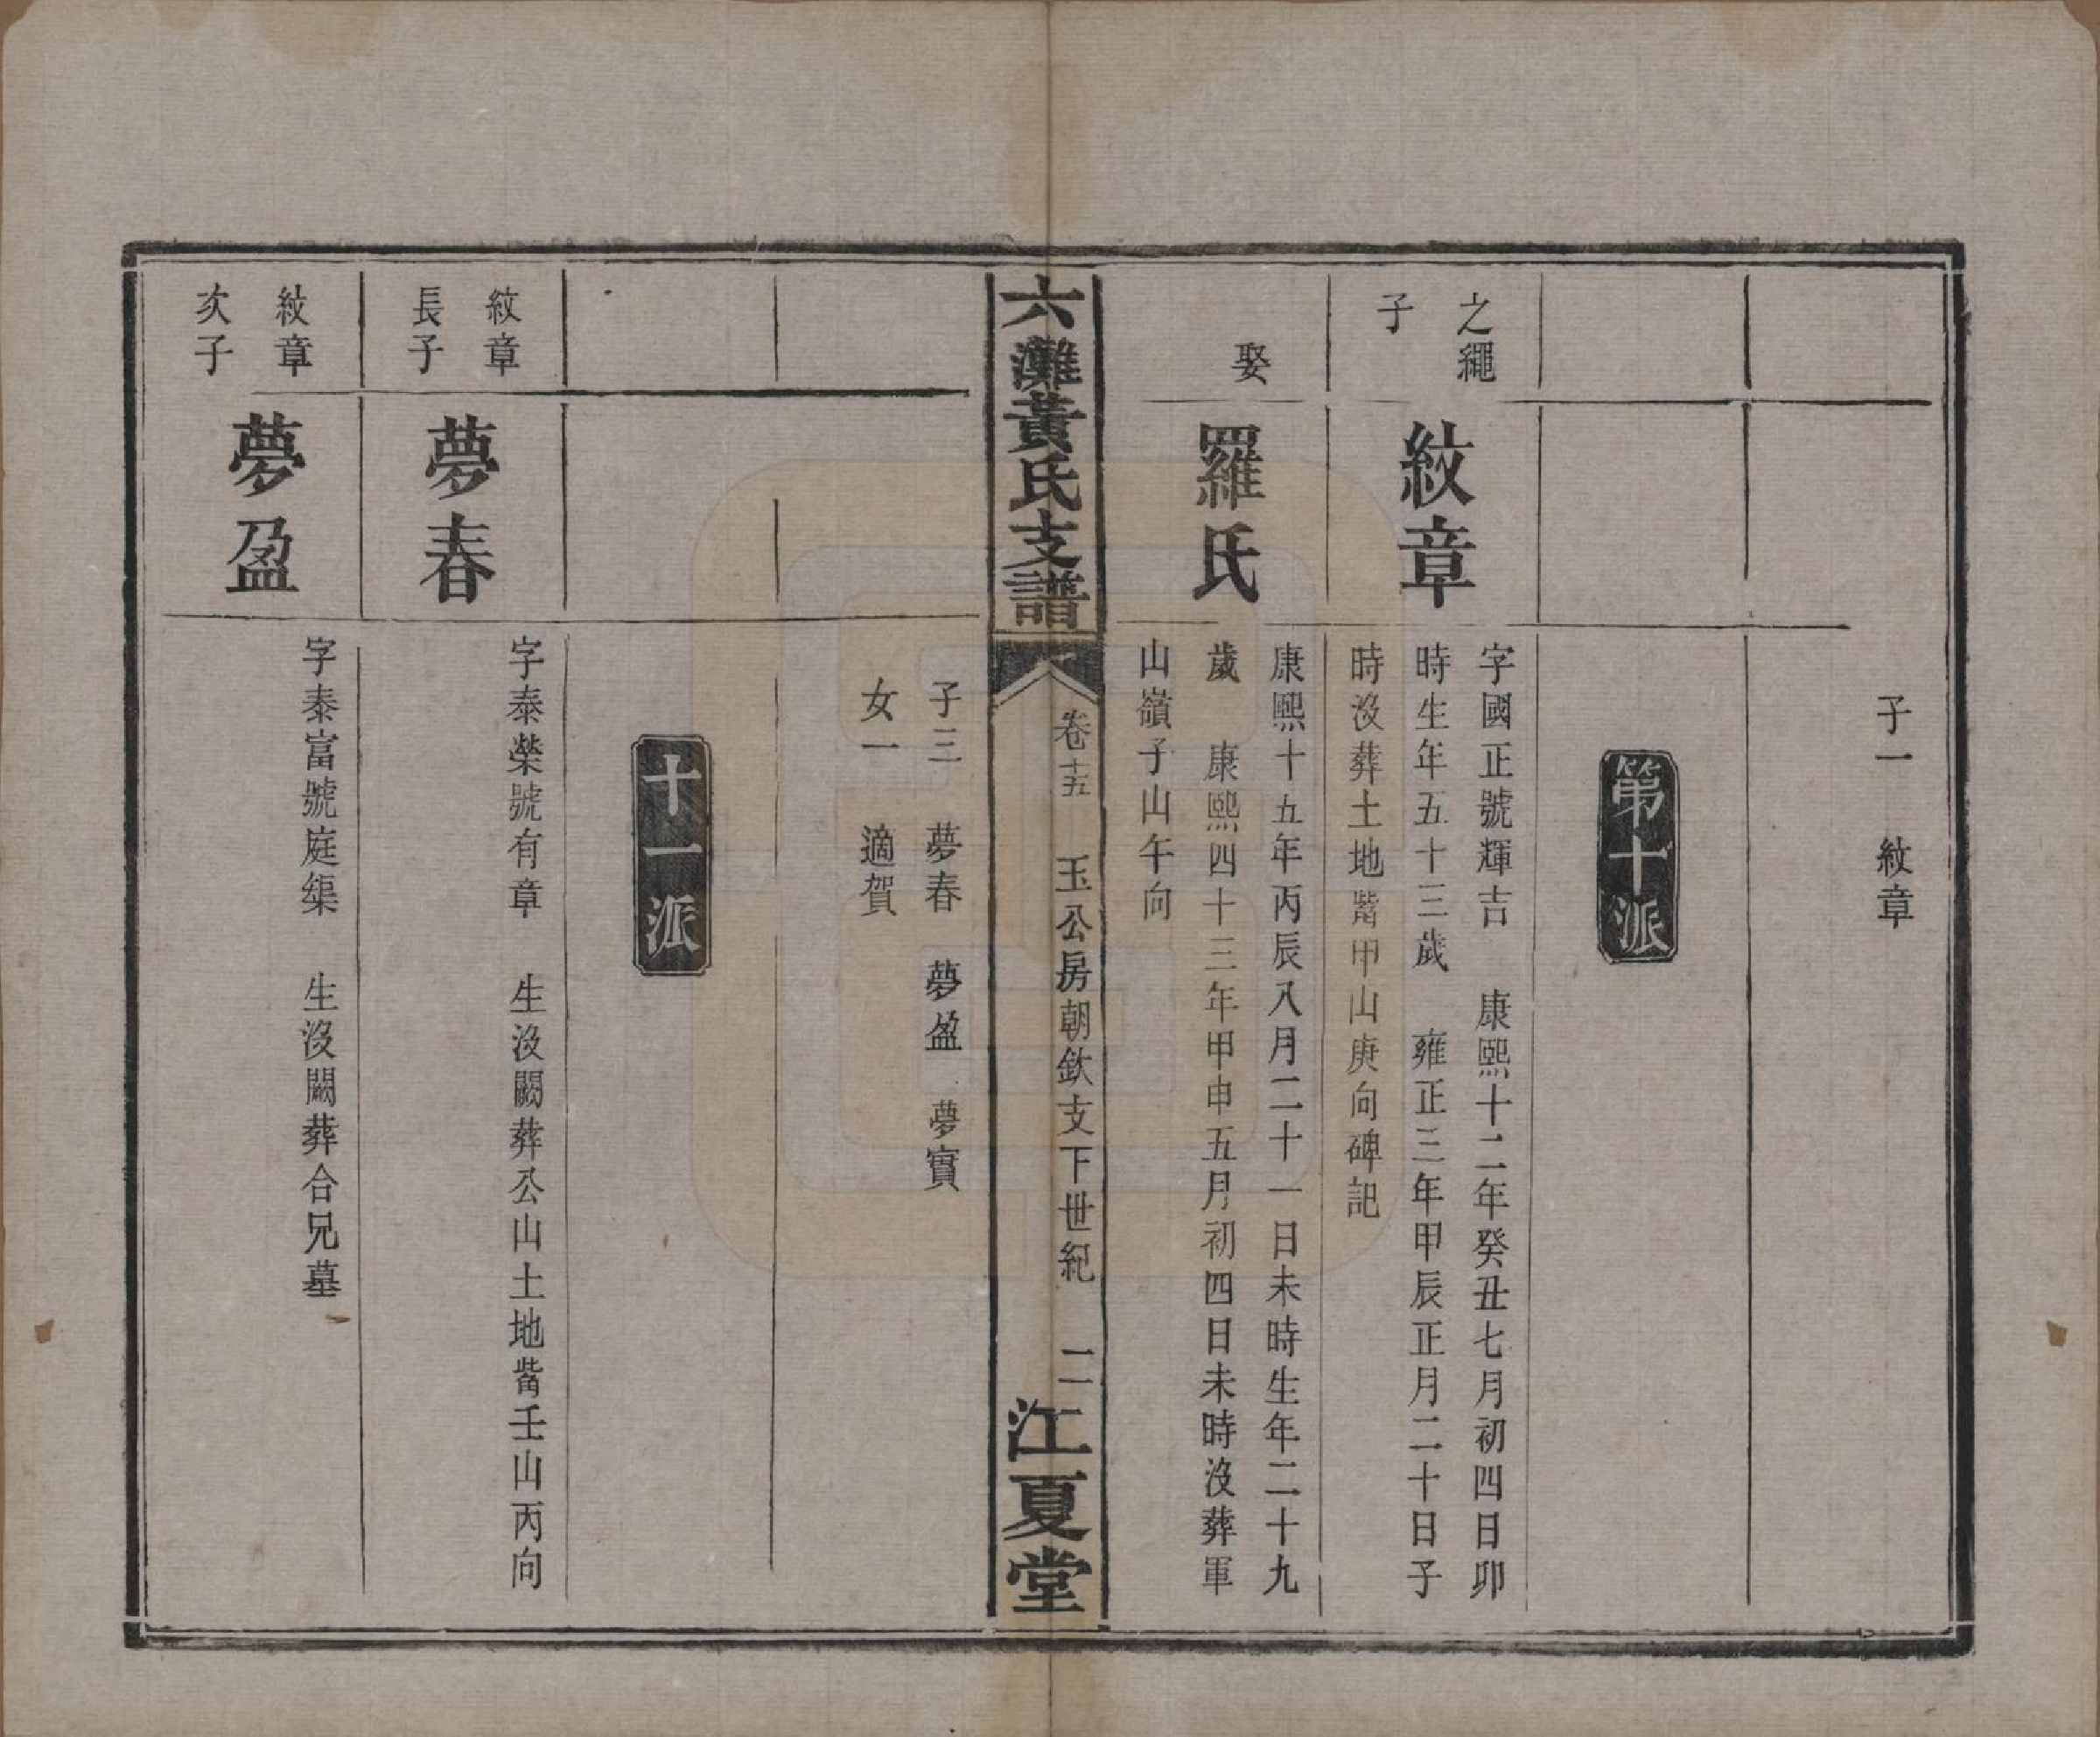 子一　紋章
第十派
之繩
子
紋章
字國正號輝吉　康熙十二年癸丑七月初四日卯
時生年五十三歲　雍正三年甲辰正月二十日子
時沒葬土地嘴甲山庚向碑記
娶
羅氏
康熙十五年丙辰八月二十一日未時生年二十九
歲　康熙四十三年甲申五月初四日未時沒葬軍
山嶺子山午向
六灘黃氏支譜
卷十五　玉公房朝欽支下世紀　二
江夏堂
子三　夢春　夢盈　夢實
女一　適賀
十一派
紋章
長子
夢春
字泰榮號有章　生沒闕葬公山土地嘴壬山丙向
紋章
次子
夢盈
字泰富號庭榘　生沒闕葬合兄墓